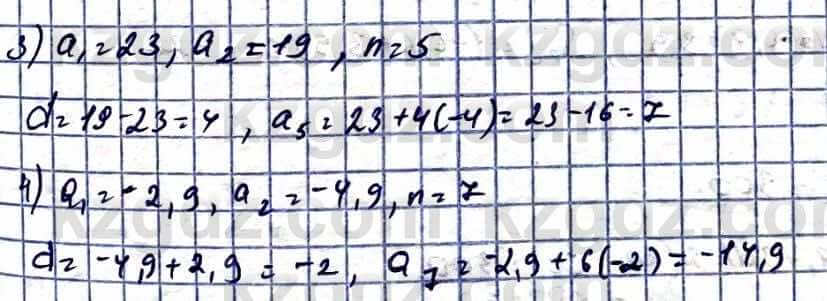 3) a₁=23, a₂=19, n=5
d=19-23=4, a₅=23+4(-4)=23-16=7
4) a₁=-2,9, a₂=-4,9, n=7
d=-4,9+2,9=-2, a₇=-2,9+6(-2)=-14,9